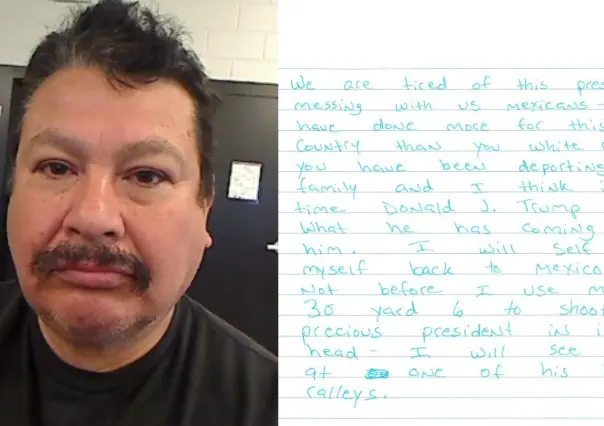 We are tired of this pres
messing with us mexicans -
have done more for this
country than you white
you have been deporting
family and I think
time Donald J. Trump
what he has coming
him. I will self
myself back to mexico
Not before I use
30 yard 6 to shoot
precious president in
head - I will see
at one of his
ralleys.